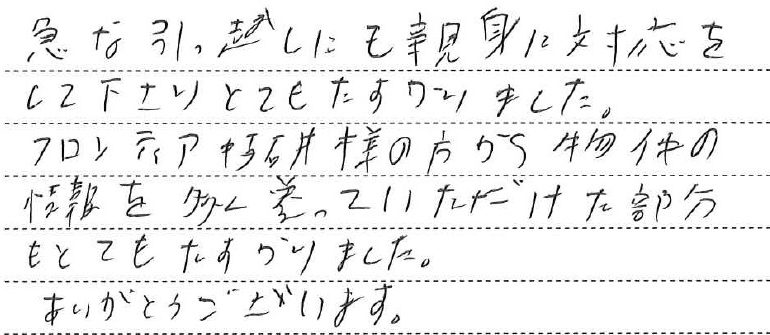 急な引っ越しにも親身に対応を
して下さりとてもたすかりました。
フロンティア 様の方から物件の
情報を多く送っていただけた部分
もとてもたすかりました。
ありがとうございます。